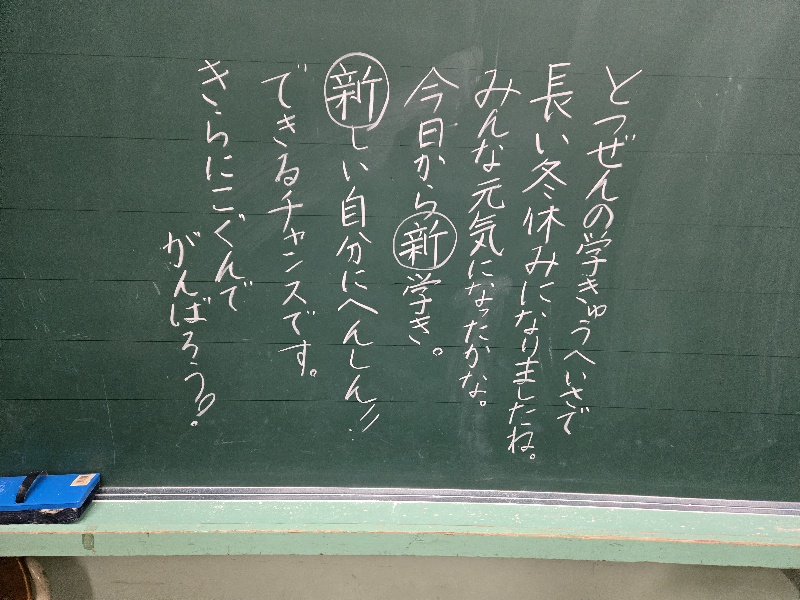 とつぜんの学きゅうへいさで
長い冬休みになりましたね。
みんな元気になったかな。
今日から新学き。
新しい自分にへんしん!!
できるチャンスです。
きらにこぐんで
がんばろう!